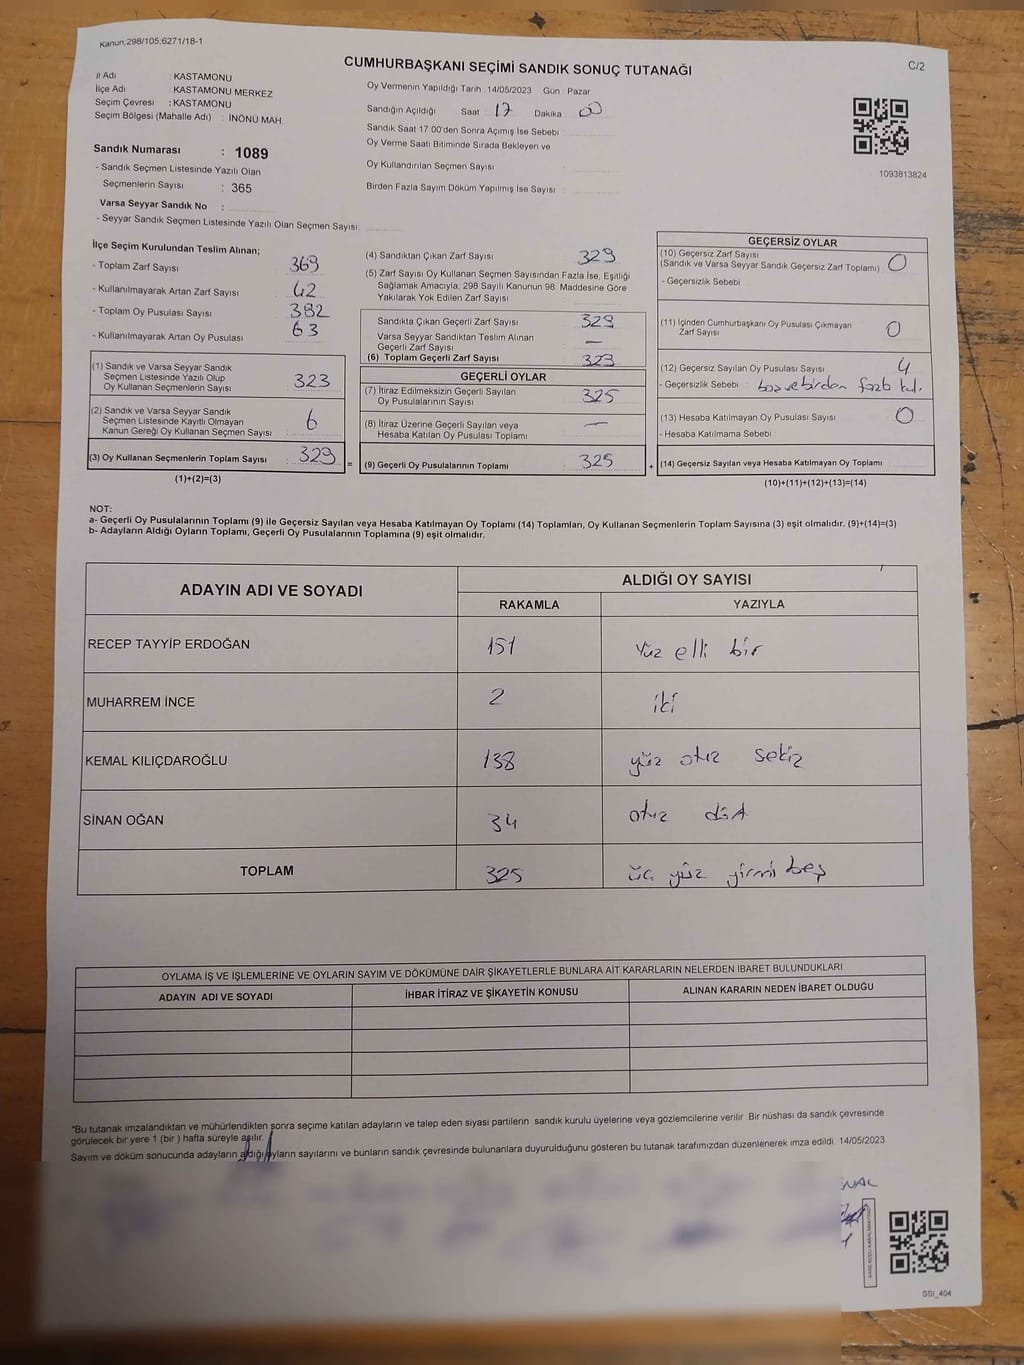 Kanun:298/105;6271/18-1
CUMHURBAŞKANI SEÇİMİ SANDIK SONUÇ TUTANAĞI
C/2
İl Adı : KASTAMONU
İlçe Adı : KASTAMONU MERKEZ
Seçim Çevresi : KASTAMONU
Seçim Bölgesi (Mahalle Adı) : İNÖNÜ MAH.
Oy Vermenin Yapıldığı Tarih :14/05/2023 Gün : Pazar
Sandığın Açıldığı Saat : 17 Dakika : 00
Sandık Saat 17:00'den Sonra Açımış İse Sebebi :
Oy Verme Saati Bitiminde Sırada Bekleyen ve
Oy Kullandırılan Seçmen Sayısı :
Birden Fazla Sayım Döküm Yapılmış İse Sayısı :
1093813824
Sandık Numarası : 1089
- Sandık Seçmen Listesinde Yazılı Olan
Seçmenlerin Sayısı : 365
Varsa Seyyar Sandık No :
- Seyyar Sandık Seçmen Listesinde Yazılı Olan Seçmen Sayısı:
İlçe Seçim Kurulundan Teslim Alınan;
- Toplam Zarf Sayısı : 369
- Kullanılmayarak Artan Zarf Sayısı : 42
- Toplam Oy Pusulası Sayısı : 392
- Kullanılmayarak Artan Oy Pusulası : 63
(1) Sandık ve Varsa Seyyar Sandık
Seçmen Listesinde Yazılı Olup
Oy Kullanan Seçmenlerin Sayısı : 323
(2) Sandık ve Varsa Seyyar Sandık
Seçmen Listesinde Kayıtlı Olmayan
Kanun Gereği Oy Kullanan Seçmen Sayısı : 6
(3) Oy Kullanan Seçmenlerin Toplam Sayısı : 329 =
(1)+(2)=(3)
(4) Sandıktan Çıkan Zarf Sayısı : 329
(5) Zarf Sayısı Oy Kullanan Seçmen Sayısından Fazla İse, Eşitliği
Sağlamak Amacıyla; 298 Sayılı Kanunun 98. Maddesine Göre
Yakılarak Yok Edilen Zarf Sayısı :
Sandıkta Çıkan Geçerli Zarf Sayısı : 329
Varsa Seyyar Sandıktan Teslim Alınan
Geçerli Zarf Sayısı : —
(6) Toplam Geçerli Zarf Sayısı : 329
GEÇERLİ OYLAR
(7) İtiraz Edilmeksizin Geçerli Sayılan
Oy Pusulalarının Sayısı : 325
(8) İtiraz Üzerine Geçerli Sayılan veya
Hesaba Katılan Oy Pusulası Toplamı : —
(9) Geçerli Oy Pusulalarının Toplamı : 325 +
GEÇERSİZ OYLAR
(10) Geçersiz Zarf Sayısı
(Sandık ve Varsa Seyyar Sandık Geçersiz Zarf Toplamı) : 0
- Geçersizlik Sebebi :
(11) İçinden Cumhurbaşkanı Oy Pusulası Çıkmayan
Zarf Sayısı : 0
(12) Geçersiz Sayılan Oy Pusulası Sayısı : 4
- Geçersizlik Sebebi : boş ve birden fazla kul.
(13) Hesaba Katılmayan Oy Pusulası Sayısı : 0
- Hesaba Katılmama Sebebi :
(14) Geçersiz Sayılan veya Hesaba Katılmayan Oy Toplamı :
(10)+(11)+(12)+(13)=(14)
NOT:
a- Geçerli Oy Pusulalarının Toplamı (9) ile Geçersiz Sayılan veya Hesaba Katılmayan Oy Toplamı (14) Toplamları, Oy Kullanan Seçmenlerin Toplam Sayısına (3) eşit olmalıdır. (9)+(14)=(3)
b- Adayların Aldığı Oyların Toplamı, Geçerli Oy Pusulalarının Toplamına (9) eşit olmalıdır.
ADAYIN ADI VE SOYADI
ALDIĞI OY SAYISI
RAKAMLA YAZIYLA
RECEP TAYYİP ERDOĞAN 151 Yüz elli bir
MUHARREM İNCE 2 iki
KEMAL KILIÇDAROĞLU 138 yüz otuz sekiz
SİNAN OĞAN 34 otuz dört
TOPLAM 325 üç yüz yirmi beş
OYLAMA İŞ VE İŞLEMLERİNE VE OYLARIN SAYIM VE DÖKÜMÜNE DAİR ŞİKAYETLERLE BUNLARA AİT KARARLARIN NELERDEN İBARET BULUNDUKLARI
ADAYIN ADI VE SOYADI İHBAR İTİRAZ VE ŞİKAYETİN KONUSU ALINAN KARARIN NEDEN İBARET OLDUĞU
*Bu tutanak imzalandıktan ve mühürlendikten sonra seçime katılan adayların ve talep eden siyasi partilerin sandık kurulu üyelerine veya gözlemcilerine verilir. Bir nüshası da sandık çevresinde
görülecek bir yere 1 (bir ) hafta süreyle asılır.
Sayım ve döküm sonucunda adayların aldığı oyların sayılarını ve bunların sandık çevresinde bulunanlara duyurulduğunu gösteren bu tutanak tarafımızdan düzenlenerek imza edildi. 14/05/2023
SSI_404